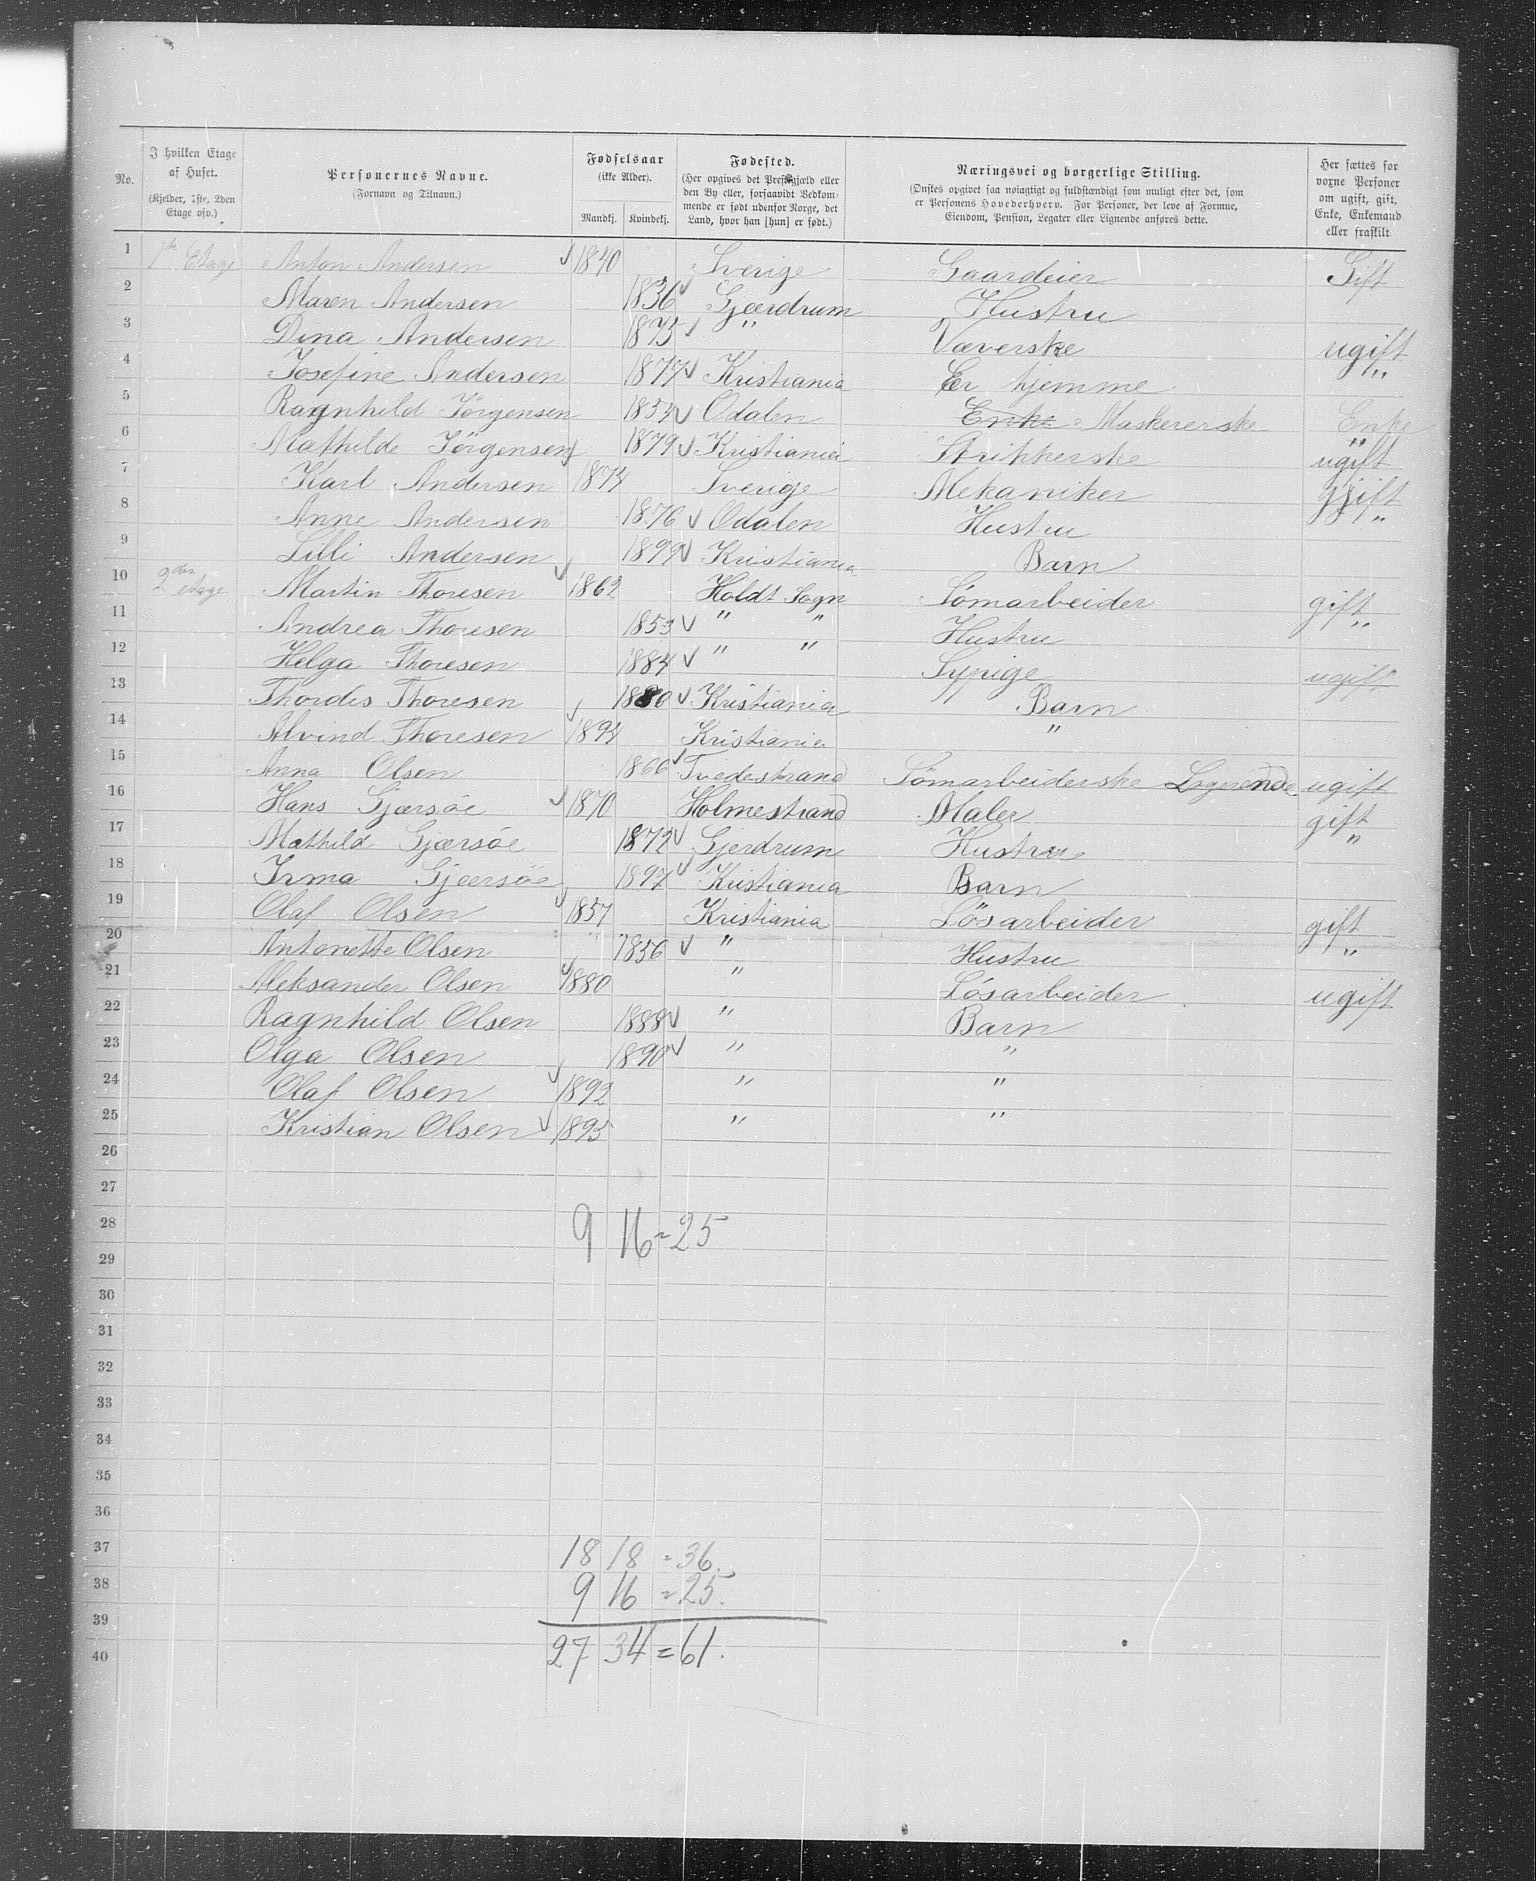 No.
I hvilken Etage af Huset. (Kjelder, 1ste, 2den Etage osv.)
Personernes Navne. (Fornavn og Tilnavn.)
Fødselsaar (ikke Alder). Mandkj. Kvindekj.
Fødested. (Her opgives det Præstegjæld eller den By eller, forsaavidt Vedkommende er født udenfor Norge, det Land, hvor han [hun] er født.)
Næringsvei og borgerlige Stilling. (Ønskes opgivet saa nøiagtigt og fuldstændigt som muligt efter det, som er Personens Hovederhverv. For Personer, der leve af Formue, Eiendom, Pension, Legater eller Lignende anføres dette.)
Her sættes for voxne Personer om ugift, gift, Enke, Enkemand eller fraskilt
1 1th Etage Anton Andersen 1840 Sverige Gaardeier Gift
2 Maren Andersen 1836 Gjerdrum Hustru
3 Dina Andersen 1875 " Væverske ugift
4 Josefine Andersen 1877 Kristiania Er hjemme "
5 Ragnhild Jörgensen 1853 Odalen Enke Maskererske Enke
6 Mathilde Jörgensen 1879 Kristiania Strikkerske ugift
7 Karl Andersen 1874 Sverige Mekaniker gjift
8 Anne Andersen 1876 Odalen Hustru "
9 Lilli Andersen 1899 Kristiania Barn
10 2den etage Martin Thoresen 1862 Holdt Sogn Sömarbeider gift
11 Andrea Thoresen 1853 " " Hustru "
12 Helga Thoresen 1884 " " Sypige ugift
13 Thordis Thoresen 1880 Kristiania Barn
14 Alvind Thoresen 1894 Kristiania "
15 Anna Olsen 1866 Tvedestrand Sömarbeiderske Logerende ugift
16 Hans Gjærsöe 1870 Holmestrand Maler gift
17 Mathild Gjærsöe 1872 Gjerdrum Hustru "
18 Irma Gjærsöe 1897 Kristiania Barn
19 Olaf Olsen 1857 Kristiania Lösarbeider gift
20 Antonette Olsen 1856 " Hustru "
21 Aleksander Olsen 1880 " Lösarbeider ugift
22 Ragnhild Olsen 1888 " Barn
23 Olga Olsen 1890 " "
24 Olaf Olsen 1892 " "
25 Kristian Olsen 1895 " "
26
27
28 9 16 = 25
29
30
31
32
33
34
35
36
37 18 18 = 36.
38 9 16 = 25.
39
40 27 34 = 61.